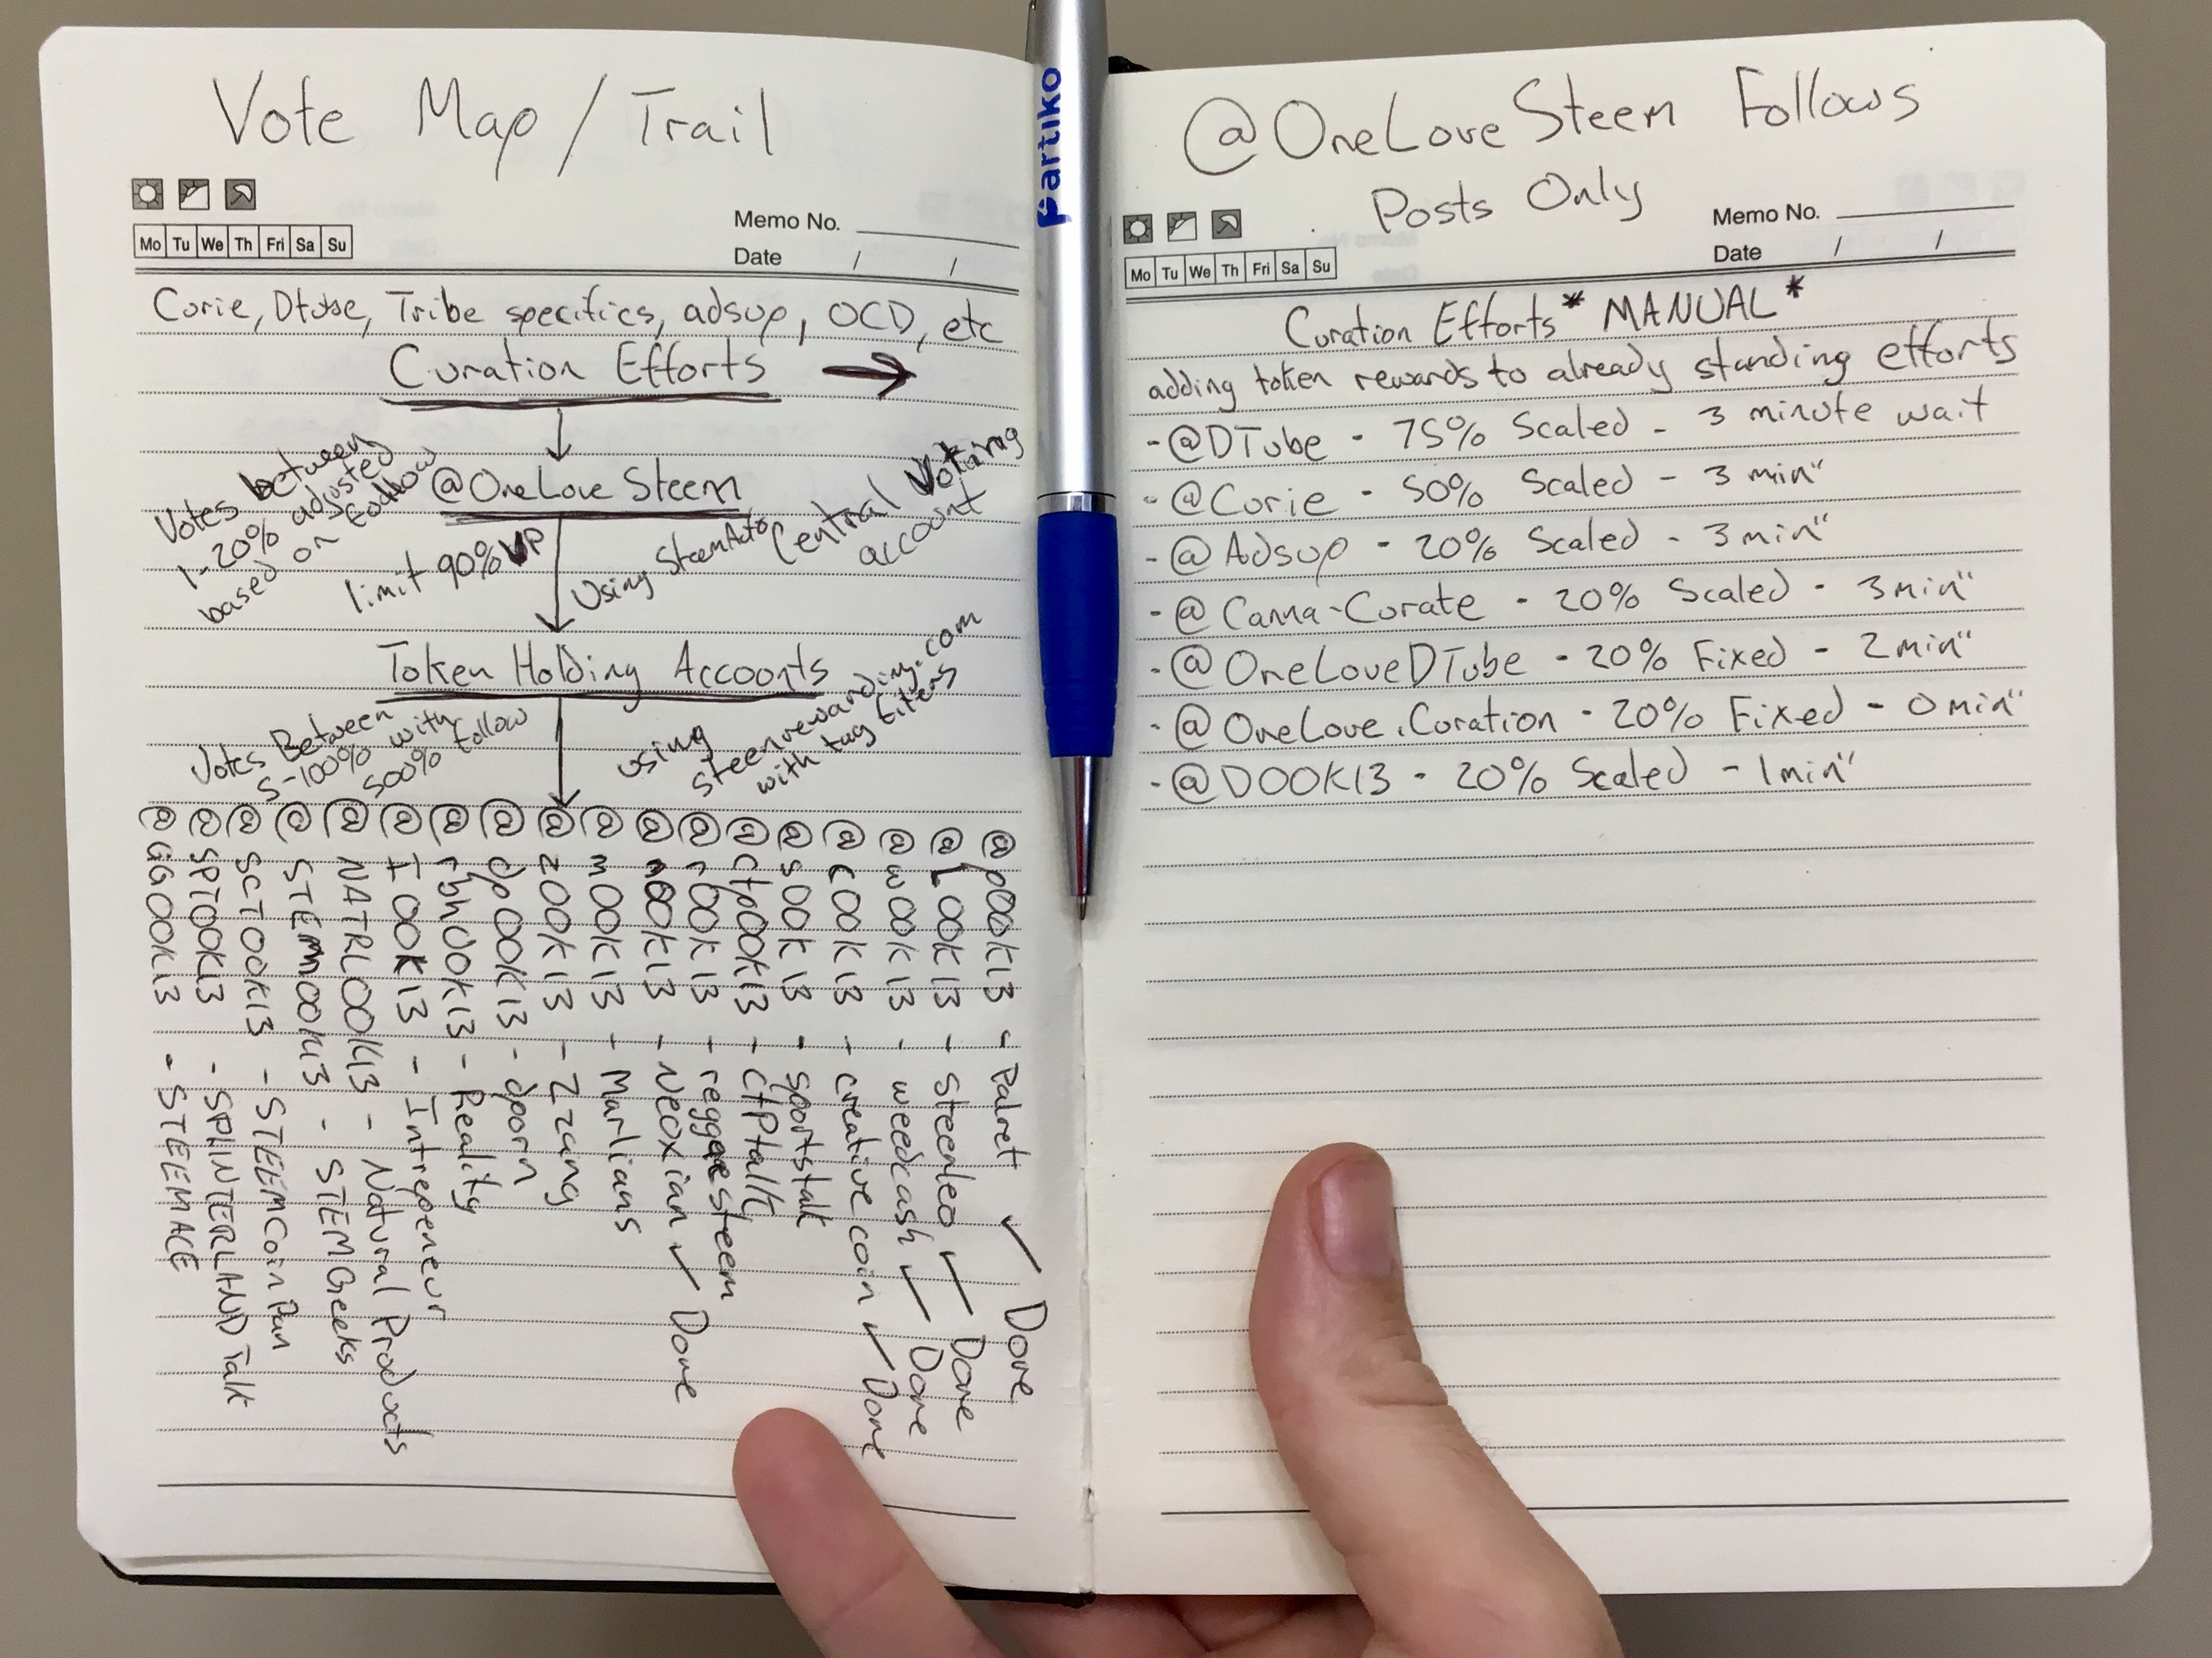 Vote Map / Trail
Memo No.
Mo Tu We Th Fri Sa Su
Date / /
Curie, Dtube, Tribe specifics, adsup, OCD, etc
Curation Efforts →
@OneLoveSteem
Votes between
1-20% adjusted
based on follow
limit 90% VP
Using SteemAuto
Central Voting
account
Token Holding Accounts
Votes Between
5-100% with
500% follow
using
steemrewarding.com
with tag filters
@p00k13 - Palnet ✓ Done
@L00k13 - Steemleo ✓ Done
@w00k13 - weedcash ✓ Done
@c00k13 - creative coin ✓ Done
@s00k13 - sportstalk
@ctp00k13 - CTPtalk
@r00k13 - reggaesteem
@n00k13 - Neoxian ✓ Done
@m00k13 - Marlians
@z00k13 - Zzang
@dp00k13 - dporn
@rh00k13 - Reality
@I00k13 - Intrepeneur
@NATRL00k13 - Natural Products
@STEM00k13 - STEMGeeks
@SCT00k13 - STEEMCoinPan
@SPT00k13 - SPLINTERLAND Talk
@GG00k13 - STEEMACE
Partiko
@OneLoveSteem Follows
Posts Only
Memo No.
Mo Tu We Th Fri Sa Su
Date / /
Curation Efforts *MANUAL*
adding token rewards to already standing efforts
- @DTube - 75% Scaled - 3 minute wait
- @Curie - 50% Scaled - 3 min"
- @Adsup - 20% Scaled - 3 min"
- @Canna-Curate - 20% Scaled - 3 min"
- @OneLoveDTube - 20% Fixed - 2 min"
- @OneLove.Curation - 20% Fixed - 0 min"
- @D00K13 - 20% Scaled - 1 min"